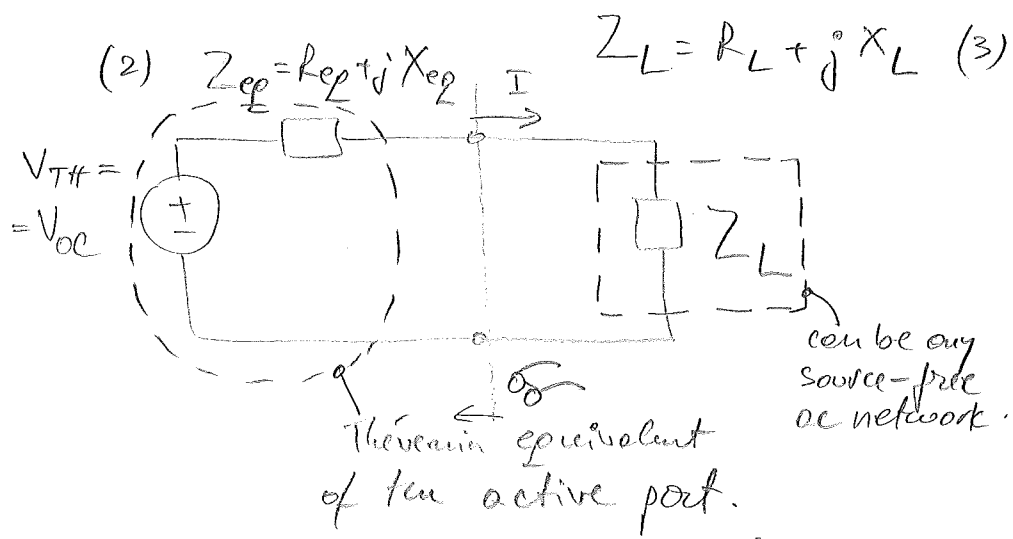 (2) Zeq = Req + j Xeq
ZL = RL + j XL (3)
I
VTH =
= VOC
+
−
ZL
can be any
source-free
ac network.
Thévenin equivalent
of the active port.